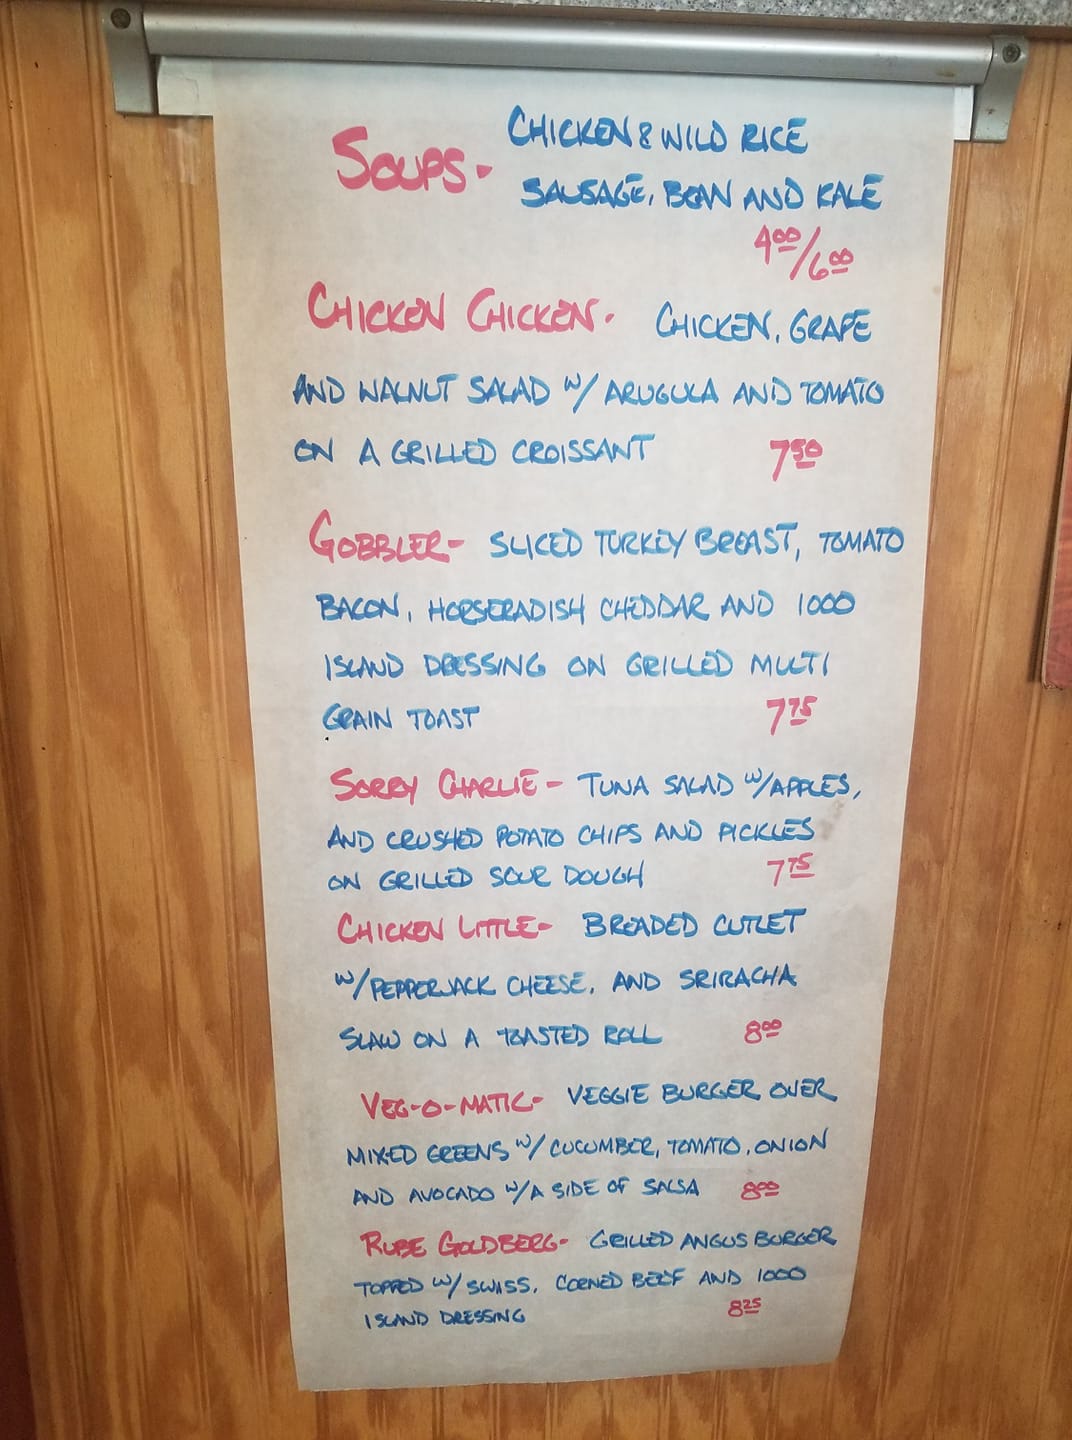 SOUPS- CHICKEN & WILD RICE
SAUSAGE, BEAN AND KALE
4.00/6.00
CHICKEN CHICKEN- CHICKEN, GRAPE
AND WALNUT SALAD W/ ARUGULA AND TOMATO
ON A GRILLED CROISSANT 7.50
GOBBLER- SLICED TURKEY BREAST, TOMATO
BACON, HORSERADISH CHEDDAR AND 1000
ISLAND DRESSING ON GRILLED MULTI
GRAIN TOAST 7.75
SORRY CHARLIE- TUNA SALAD W/APPLES,
AND CRUSHED POTATO CHIPS AND PICKLES
ON GRILLED SOUR DOUGH 7.75
CHICKEN LITTLE- BREADED CUTLET
W/PEPPERJACK CHEESE, AND SRIRACHA
SLAW ON A TOASTED ROLL 8.00
VEG-O-MATIC- VEGGIE BURGER OVER
MIXED GREENS W/ CUCUMBER, TOMATO, ONION
AND AVOCADO W/A SIDE OF SALSA 8.00
RUBE GOLDBERG- GRILLED ANGUS BURGER
TOPPED W/ SWISS, CORNED BEEF AND 1000
ISLAND DRESSING 8.25